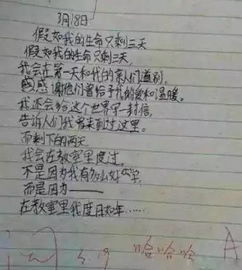 3月18日
假如我的生命只剩三天
假如我的生命只剩三天,
我会在第一天和我的亲人们道别,
感谢他们曾给予我的爱和温暖。
我还会给这个世界写一封信,
告诉人们我曾来到过这里。
而剩下的两天,
我会在教室里度过,
不是因为我有多么好学,
而是因为——
在教室里我度日如年……
3.19
哈哈哈
A